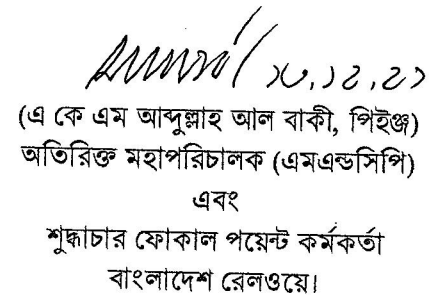 ১৩.১২.২১
(এ কে এম আব্দুল্লাহ আল বাকী, পিইঞ্জ)
অতিরিক্ত মহাপরিচালক (এমএন্ডসিপি)
এবং
শুদ্ধাচার ফোকাল পয়েন্ট কর্মকর্তা
বাংলাদেশ রেলওয়ে।